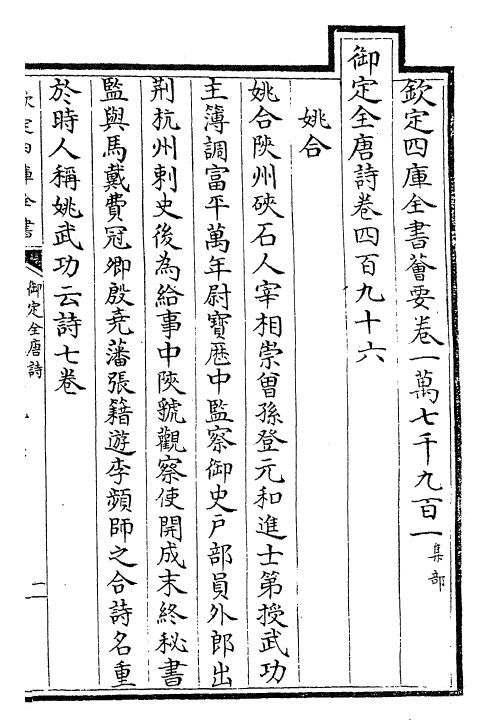 欽定四庫全書薈要卷一萬七千九百一集部
御定全唐詩卷四百九十六
姚合
姚合陝州硤石人宰相崇曾孫登元和進士第授武功
主簿調富平萬年尉寶歷中監察御史戶部員外郎出
荆杭州刺史後為給事中陝虢觀察使開成末終秘書
監與馬戴費冠卿殷堯藩張籍遊李頻師之合詩名重
於時人稱姚武功云詩七卷
欽定四庫全書
御定全唐詩
二